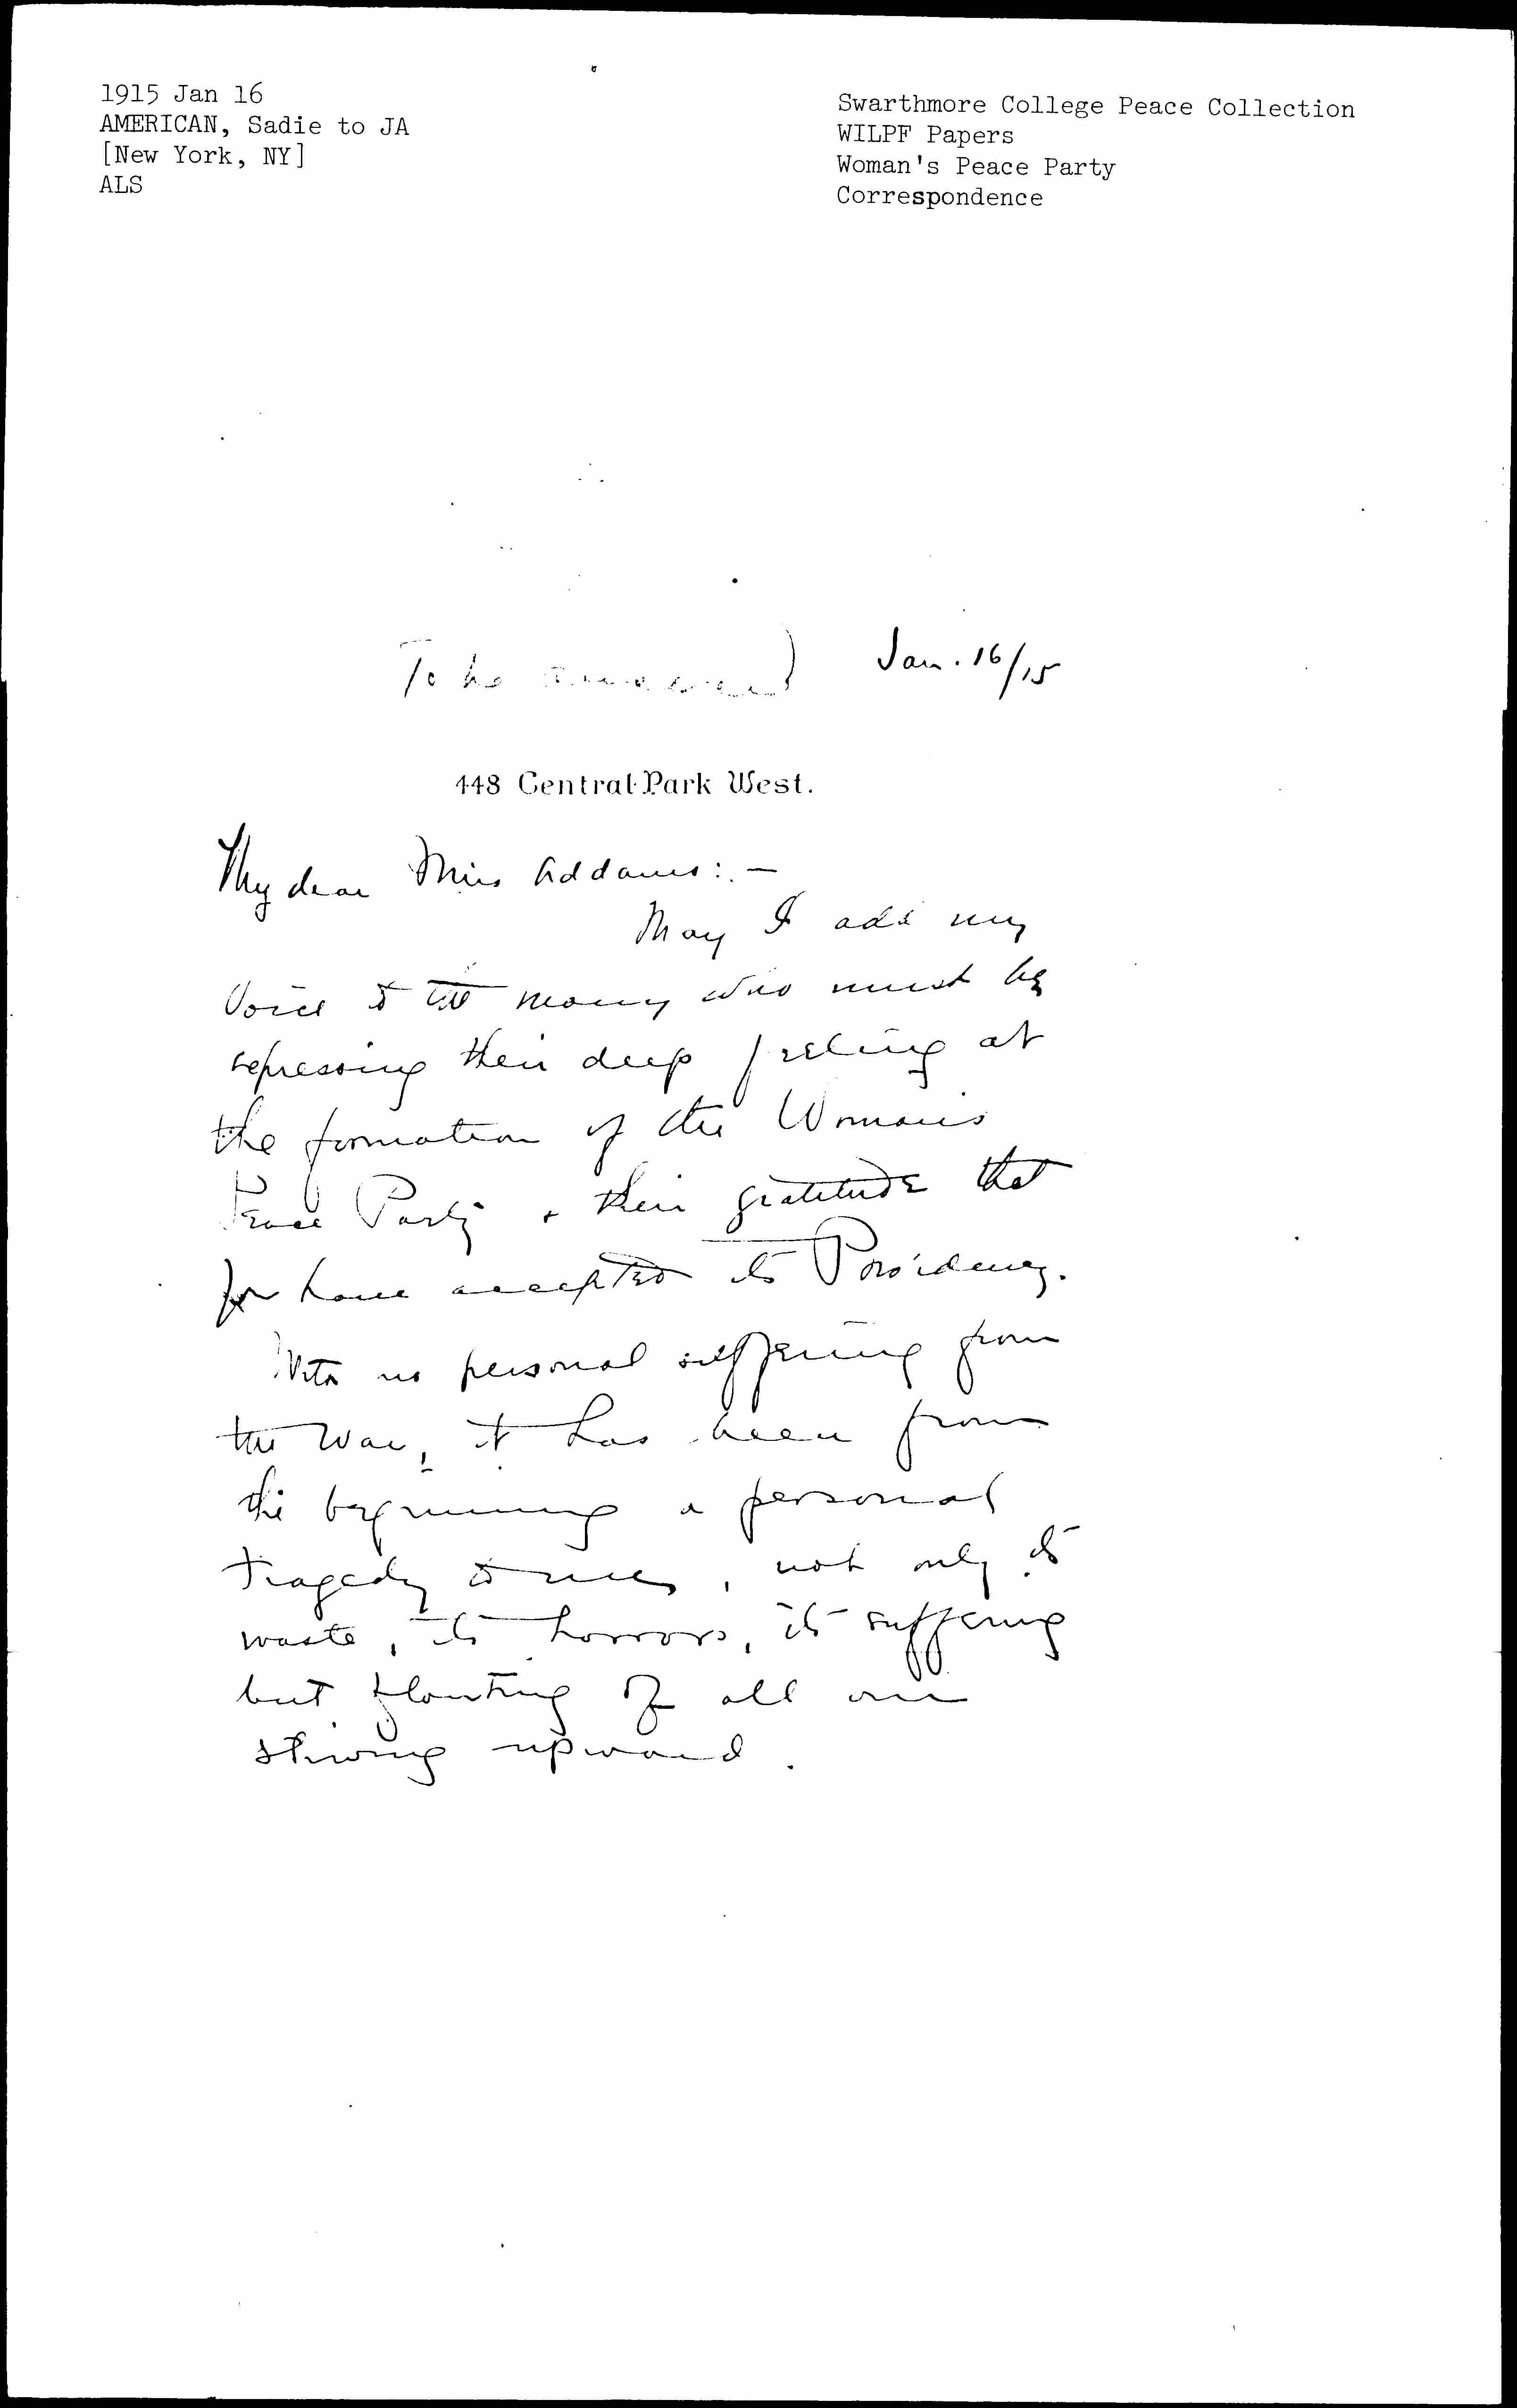 1915 Jan 16
AMERICAN, Sadie to JA
[New York, NY]
ALS
Swarthmore College Peace Collection
WILPF Papers
Woman's Peace Party
Correspondence
To be answered
Jan. 16/15
448 Central Park West.
My dear Miss Addams: —
May I add my
voice to the many who must be
expressing their deep feeling at
the formation of the Woman's
Peace Party & their gratitude that
you have accepted its Presidency.
With no personal suffering from
the War, it has been from
the beginning a personal
tragedy to me, not only its
waste, its horrors, its suffering
but flouting of all our
striving upward.